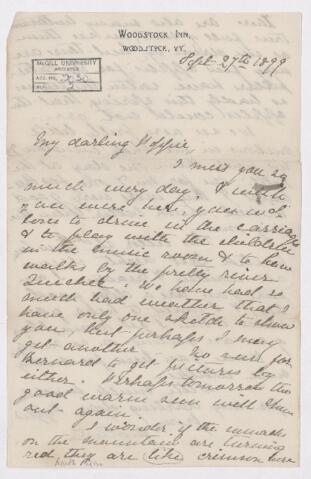 WOODSTOCK INN,
WOODSTOCK, VT.
McGILL UNIVERSITY
ARCHIVES
ACC. NO.
REF.
Sept. 27th 1899
My darling
I miss you so
much every day. I wish
you were here, you wd
love to drive in the carriage
& to play with the children
in the music room & to have
walks by the pretty river
Quechee. We have had so
much bad weather that I
have only one sketch to show
you but perhaps I may
get another. No sun for
Bernard to get pictures by
either. Perhaps tomorrow the
good warm sun will shine
out again.
I wonder if the sumachs
on the mountain are turning
red, they are like crimson here